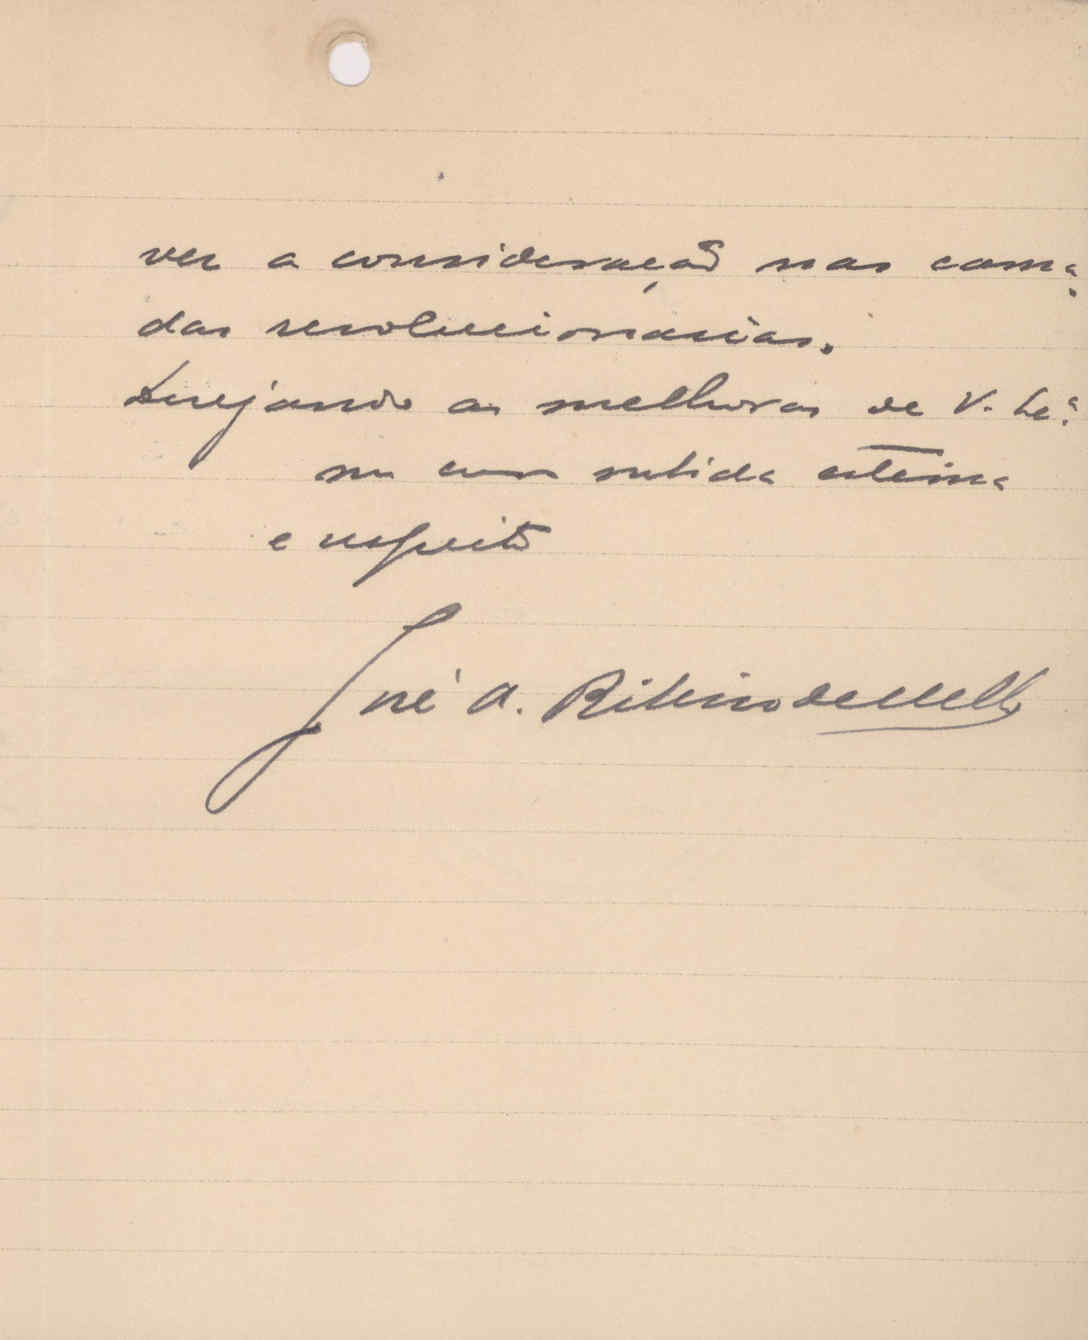 ver a consideração nas cama-
das revolucionarias.
Desejando as melhoras de V. Ex.ª
sou com subida estima
e respeito
José A. Ribeiro de Mello